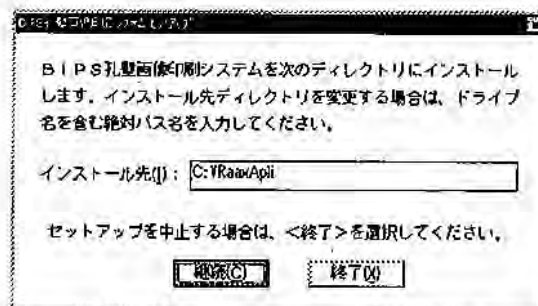 BIPS孔壁画像印刷システムを次のディレクトリにインストール
します。インストール先ディレクトリを変更する場合は、ドライブ
名を含む絶対パス名を入力してください。
インストール先(I): C:¥RaaxApli
セットアップを中止する場合は、<終了>を選択してください。
継続(C) 終了(X)